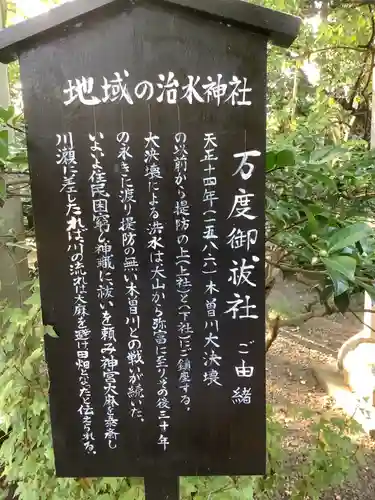 地域の治水神社
万度御祓社 ご由緒
天正十四年(一五八六)木曽川大決壊
の以前から堤防の上(上社)と(下社)にご鎮座する。
大決壊による洪水は犬山から弥富に至りその後三十年
の永きに渡り堤防の無い木曽川との戦が続いた。
いよいよ住民困窮し神繊に祓いを頼み神宮大麻を奉斎し
川瀬に差したれば川の流れは大麻を避け田畑となったと伝えられる。